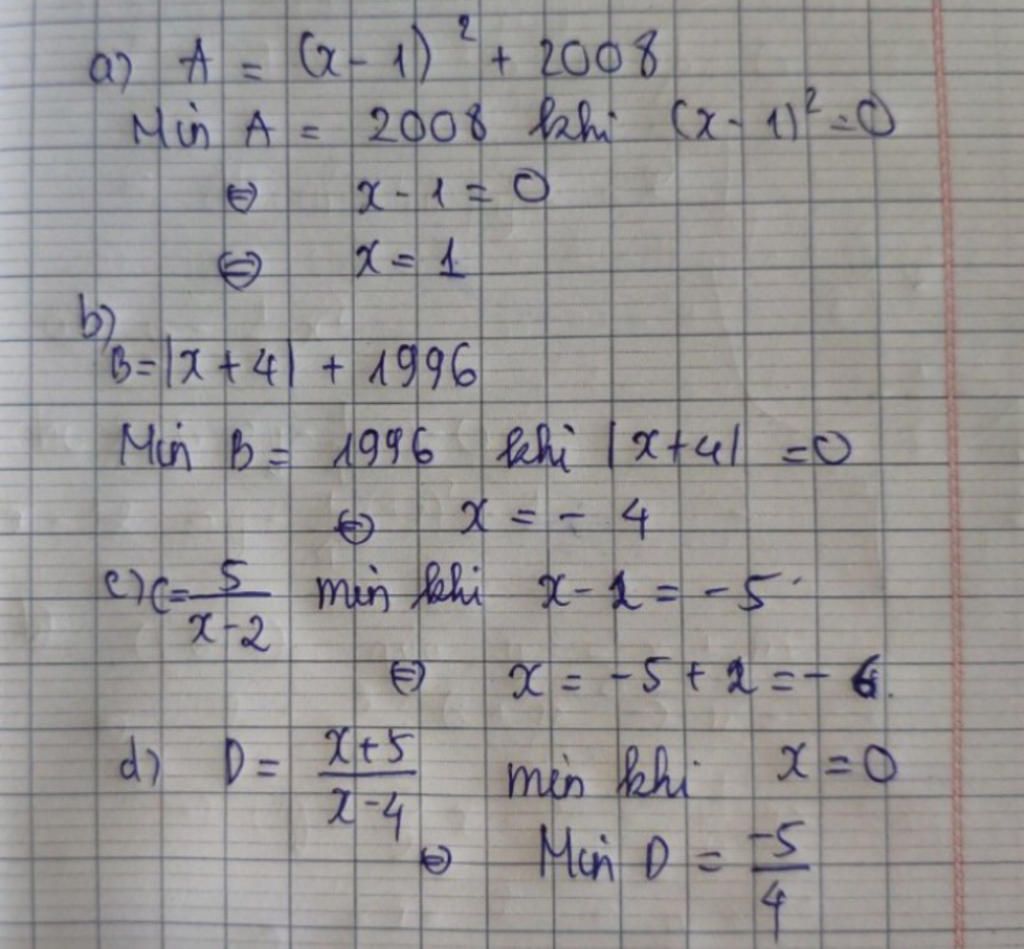 a) A = (x - 1)² + 2008
Min A = 2008 khi (x - 1)² = 0
⇔ x - 1 = 0
⇔ x = 1
b)
B = |x + 4| + 1996
Min B = 1996 khi |x + 4| = 0
⇔ x = - 4
c) C = 5/(x - 2) min khi x - 2 = - 5
⇔ x = - 5 + 2 = - 6.
d) D = (x + 5)/(x - 4) min khi x = 0
⇔ Min D = -5/4